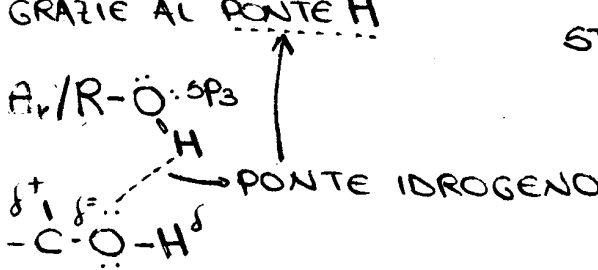 GRAZIE AL PONTE H
ST
Ar/R-Ö: SP3
H
PONTE IDROGENO
δ+ δ= δ
-C-O-H